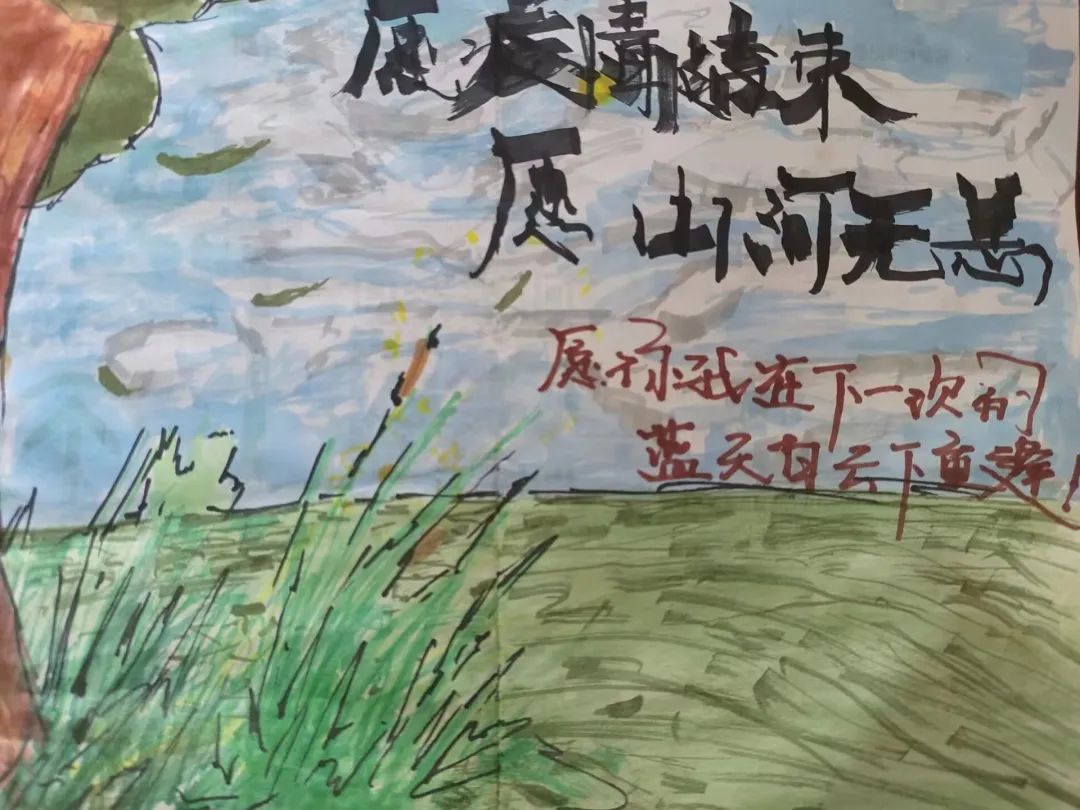 愿疫情结束
愿山河无恙
愿你我在下一次的
蓝天白云下重逢！